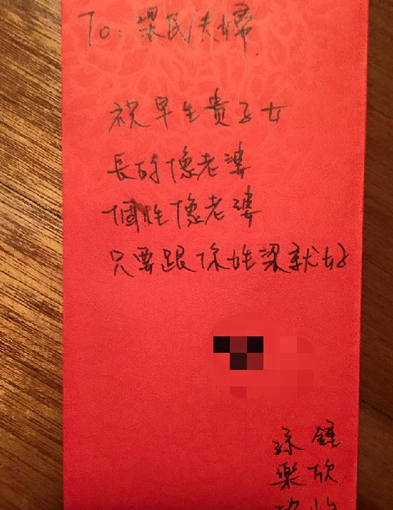 To: 梁氏夫婦
祝早生貴子女
長的像老婆
個性像老婆
只要跟你姓梁就好
鍾欣怡
孫樂